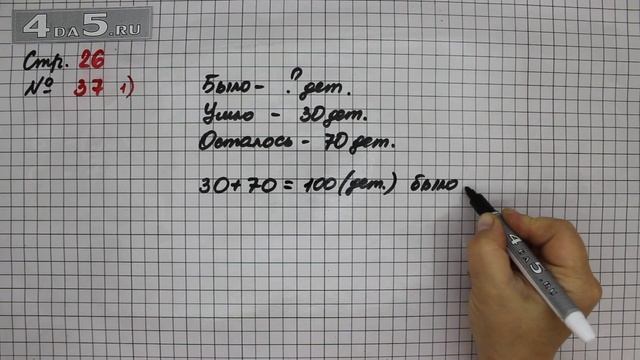 4DA5.RU
Стр. 26
№ 37 1)
Было - ? дет.
Ушло - 30 дет.
Осталось - 70 дет.
30+70 = 100 (дет.) было
4DA5.RU